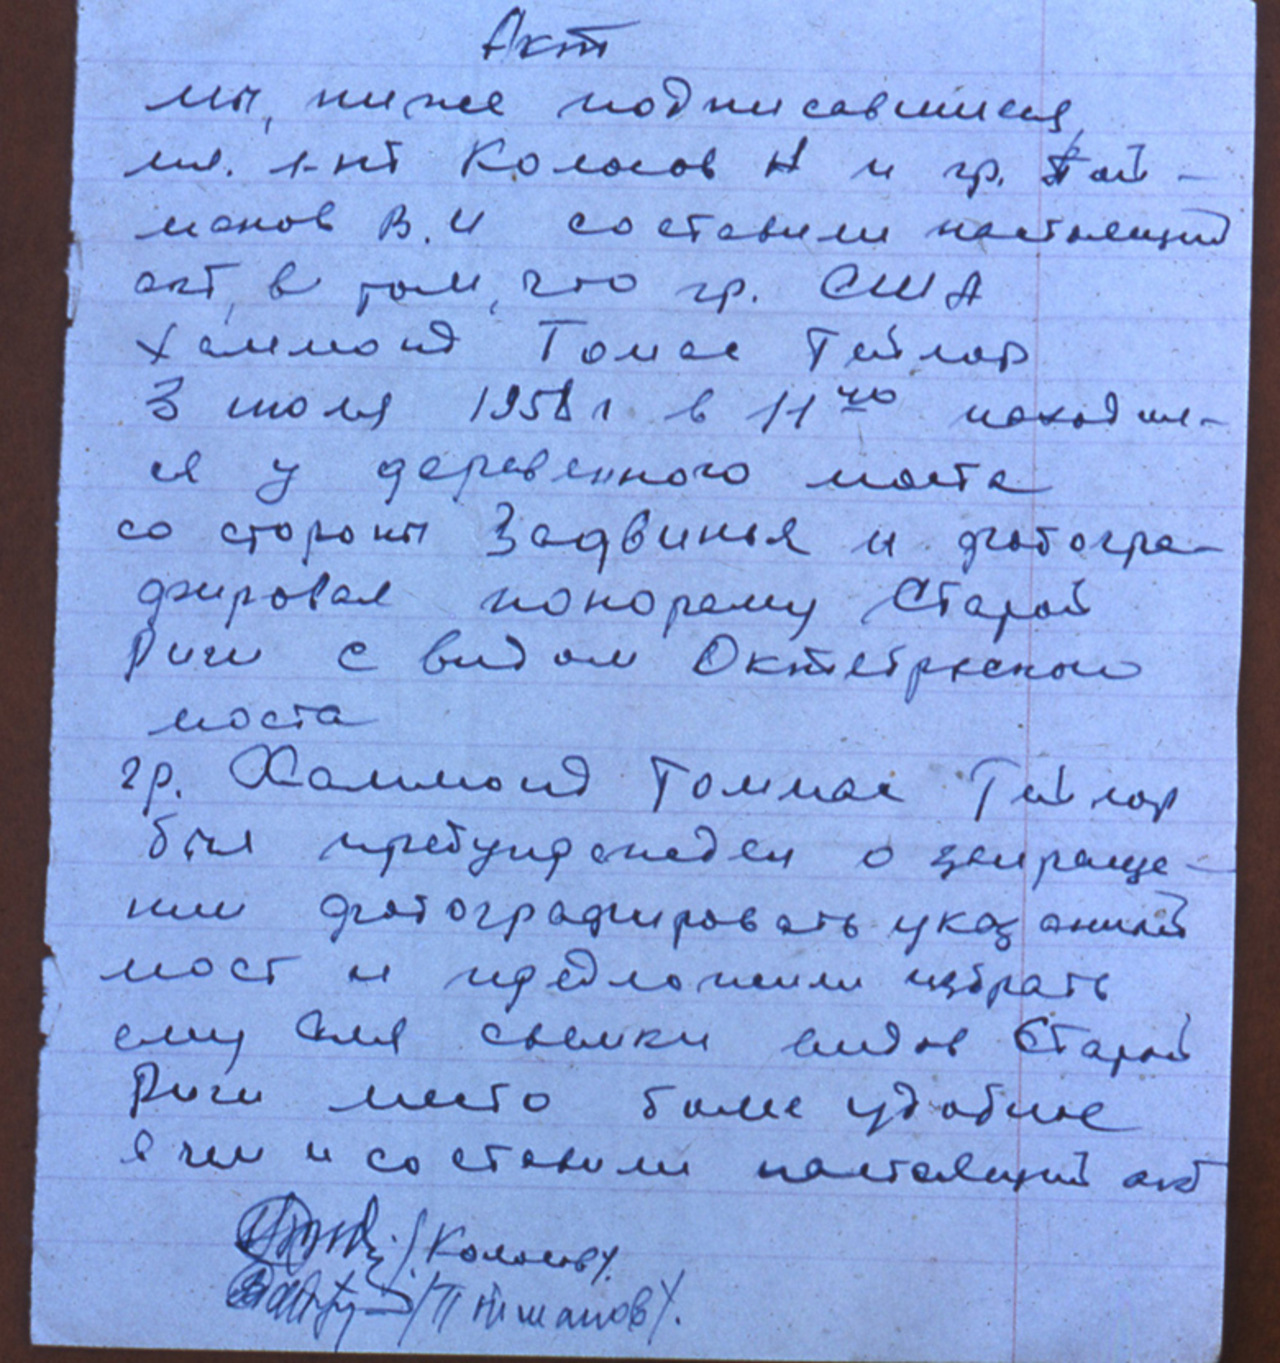 Акт
мы, ниже подписавшиеся,
мл. л-нт Колосов Н и гр. Пай-
манов В.И составили настоящий
акт, в том, что гр. США
Хаммонд Томас Тейлор
3 июля 1958 г в 11 40 находил-
ся у деревенного моста
со стороны Задвинья и фотогра-
фировал понораму Старой
Риги с видом Октябрьского
моста
гр. Хаммонд Томмас Тейлор
был предупрежден о запреще-
нии фотографировать указанный
мост и предложили избрать
ему для съемки видов Старой
Риги место более удобное
о чем и составили настоящий акт
/Колосов/.